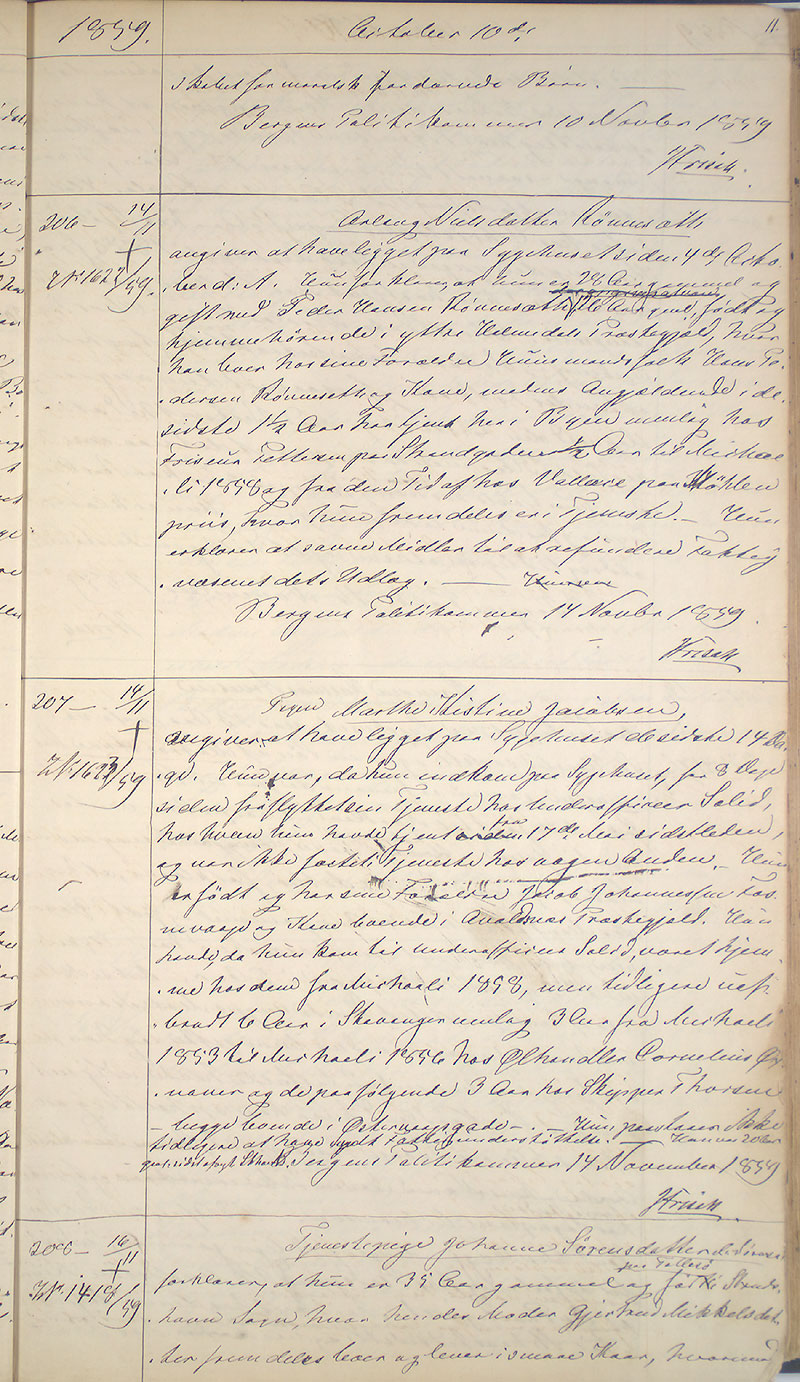 1859. October 10de 11.
skabet for moralsk fordærvede Børn. —
Bergens Politikammer 10 Novbr 1859
Frisak.
206 — 14/11
Nielsdatter Rønnesæth
angiver at have ligget paa Sygehuset siden 4de Octo-
No 162 /59.
ber d: A. Hun forklarer at hun er 28 Aar gammel og
gift med Peder Hansen Rønnesæth, 26 Aar gml, født og
hjemmehørende i yttre Præstegjæld, hvor
han boer hos sine Forældre Huusmandsfolk Hans Pe-
dersen Rønnesæth og Kone, medens Angjældende i de
sidste 1½ Aar har tjent her i Byen nemlig hos
Friseur Pettersen paa Strandgaden ½ Aar til Michae-
li 1858 og fra den Tid af hos Vallace paa Møhlen
priis, hvor hun fremdeles er i Tjeneste. — Hun
erklærer at savne Midler til at refundere Fattig
væsenet dets Udlæg. —
Bergens Politikammer 14 Novbr 1859.
Frisak
207 — 14/11
Pigen Marthe Kistine Jacobsen,
angiver at have ligget paa Sygehuset de sidste 14 Da-
No 1623/59
ge. Hun var, da hun indkom paa Sygehuset, for 8 Dage
siden fraflyttet sin Tjeneste hos Underofficeer Solid,
hos hvem hun havde tjent fra 17de Mai sidstleden,
og var ikke fæstet i Tjeneste hos nogen Anden. Hun
er født og har sine Forældre Jacob Johannessen Fos-
nvaage og Kone boende i Avaldsnæs Præstegjæld. Hun
havde, da hun kom til Underofficeer Solid, været hjem-
me hos dem fra Michaeli 1858, men tidligere uaf-
brudt 6 Aar i Stavanger nemlig 3 Aar fra Michaeli
1853 til Michaeli 1856 hos Ølhandler Cornelius
og de paafølgende 3 Aar hos Skipper Thorsen
— begge boende i Østervaagsgade —. — Hun paastaaer ikke
tidligere at have nydt Fattigunderstøttelse. — Hun var 20 Aar
Bergens Politikammer 14 November 1859
Frisak
208 — 16/11
Tjenestepige Johanne Sørensdatter
paa
No 1418/59
forklarer, at hun er 35 Aar gammel og født i
havn Sogn, hvor hendes Moder Gjertrud Mikkelsdat-
ter fremdeles boer og lever i smaae Kaar, hvorimod